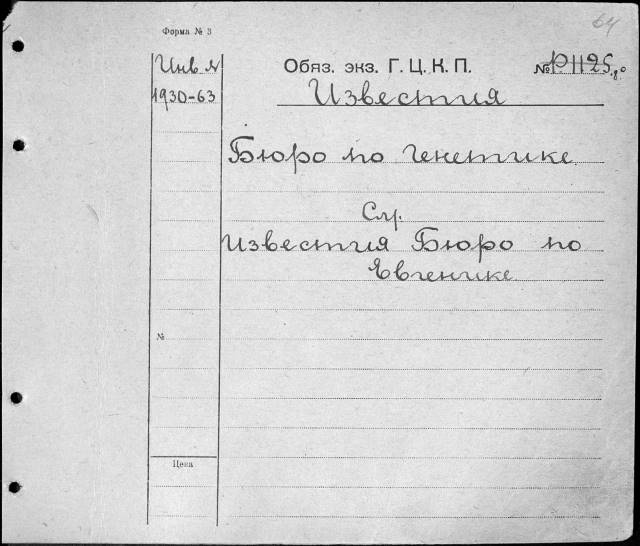 64
Форма № 3
Инв №
1930-63
Обяз. экз. Г. Ц. К. П.
№ Р1125
Известия
Бюро по Генетике
См.
Известия Бюро по
Евгенике
№
Цена